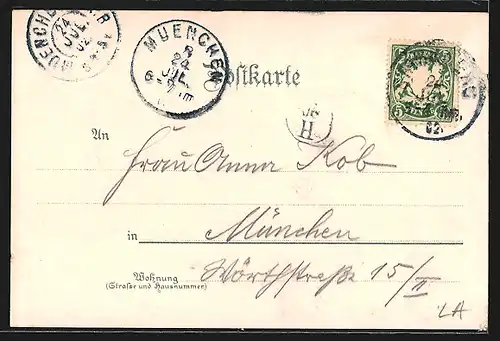 MUENCHEN
24
JUL
02
MUENCHEN
8
24
JUL
6-7 Nm
Postkarte
5
24
JUL
02.
H.
An
Frau Anna Kob
in München
Wohnung
(Straße und Hausnummer)
Wörthstraße 15/II
LA